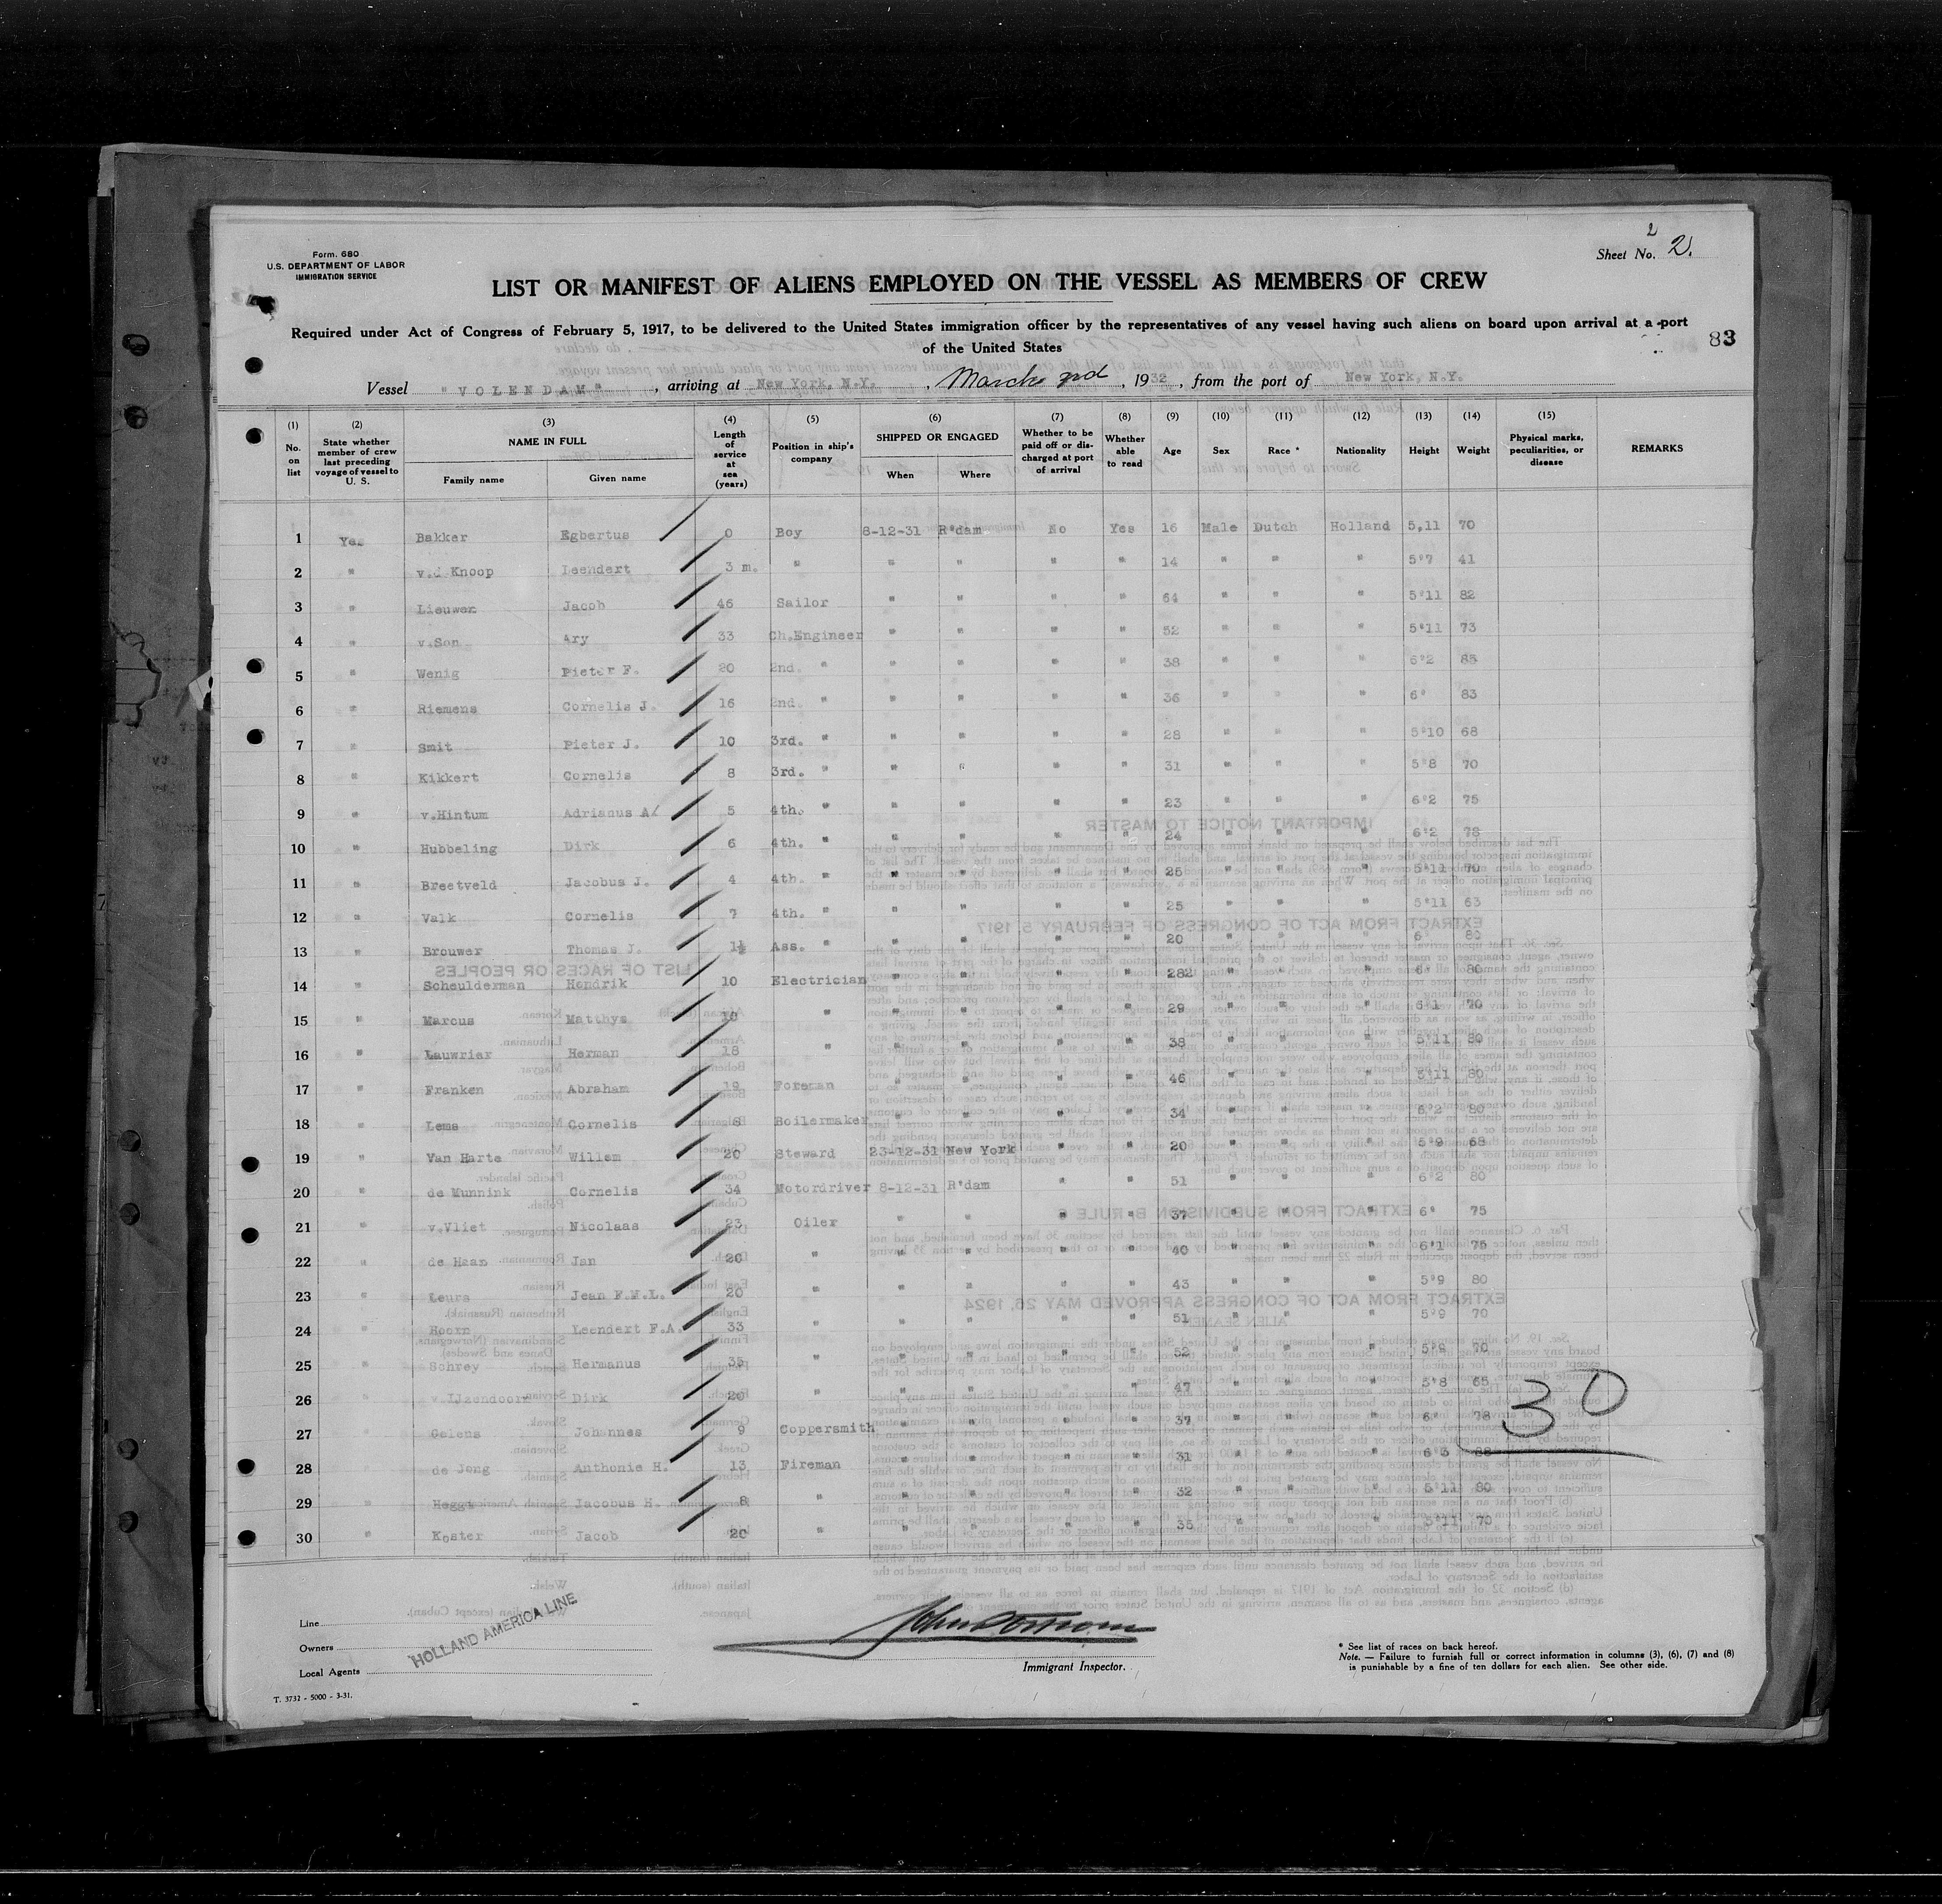 Form. 680
U.S. DEPARTMENT OF LABOR
IMMIGRATION SERVICE
2
Sheet No. 2.
LIST OR MANIFEST OF ALIENS EMPLOYED ON THE VESSEL AS MEMBERS OF CREW
Required under Act of Congress of February 5, 1917, to be delivered to the United States immigration officer by the representatives of any vessel having such aliens on board upon arrival at a port
of the United States
83
Vessel "VOLENDAM", arriving at New York, N.Y., March 2nd, 1932, from the port of New York, N.Y.
(1) (2) (3) (4) (5) (6) (7) (8) (9) (10) (11) (12) (13) (14) (15)
No. on list State whether member of crew last preceding voyage of vessel to U. S. NAME IN FULL Family name Given name Length of service at sea (years) Position in ship's company SHIPPED OR ENGAGED When Where Whether to be paid off or discharged at port of arrival Whether able to read Age Sex Race * Nationality Height Weight Physical marks, peculiarities, or disease REMARKS
1 Yes Bakker Egbertus 0 Boy 8-12-31 R'dam No Yes 16 Male Dutch Holland 5,11 70
2 " v.d Knoop Leendert 3 m. " " " " " 14 " " " 5'7 41
3 " Lieuwen Jacob 46 Sailor " " " " 64 " " " 5'11 82
4 " v.Son Ary 33 Ch.Engineer " " " " 52 " " " 5'11 73
5 " Wenig Pieter F. 20 2nd. " " " " " 38 " " " 6'2 85
6 " Riemens Cornelis J. 16 2nd. " " " " " 36 " " " 6' 83
7 " Smit Pieter J. 10 3rd. " " " " " 28 " " " 5'10 68
8 " Kikkert Cornelis 8 3rd. " " " " " 31 " " " 5'8 70
9 " v.Hintum Adrianus A. 5 4th. " " " " " 23 " " " 6'2 75
10 " Hubbeling Dirk 6 4th. " " " " " 24 " " " 6'2 78
11 " Breetveld Jacobus J. 4 4th. " " " " " 25 " " " 5'11 70
12 " Valk Cornelis 7 4th. " " " " " 25 " " " 5'11 63
13 " Brouwer Thomas J. 1½ Ass. " " " " " 20 " " " 6' 80
14 " Scheulderman Hendrik 10 Electrician " " " " 282 " " " 6' 80
15 " Marcus Matthys 10 " " " " " 29 " " " 6'1 70
16 " Lauwrier Herman 18 " " " " " 38 " " " 5'11 80
17 " Franken Abraham 19 Foreman " " " " 46 " " " 5'11 80
18 " Lems Cornelis 8 Boilermaker " " " " 34 " " " 6'2 80
19 " Van Harte Willem 20 Steward 23-12-31 New York " " 20 " " " 5'9 68
20 " de Munnink Cornelis 34 Motordriver 8-12-31 R'dam " " 51 " " " 6'2 80
21 " v.Vliet Nicolaas 23 Oiler " " " " 37 " " " 6' 75
22 " de Haan Jan 20 " " " " " 40 " " " 6'1 75
23 " Leurs Jean F.M.L. 20 " " " " " 43 " " " 5'9 80
24 " Hoorn Leendert F.A. 33 " " " " " 51 " " " 5'9 70
25 " Schrey Hermanus 35 " " " " " 52 " " " 5'9 70
26 " v.IJzendoorn Dirk 20 " " " " " 47 " " " 5'8 65
27 " Gelens Johannes 9 Coppersmith " " " " 37 " " " 6' 78
28 " de Jong Anthonie H. 13 Fireman " " " " 31 " " " 6'3 88
29 " Jacobus H. 8 " " " " " 32 " " " 5'11 80
30 " Koster Jacob 20 " " " " " 35 " " " 5'11 70
30
Line
Owners
Local Agents
HOLLAND AMERICA LINE
Immigrant Inspector.
* See list of races on back hereof.
Note. — Failure to furnish full or correct information in columns (3), (6), (7) and (8)
is punishable by a fine of ten dollars for each alien. See other side.
T. 3732 - 5000 - 3-31.